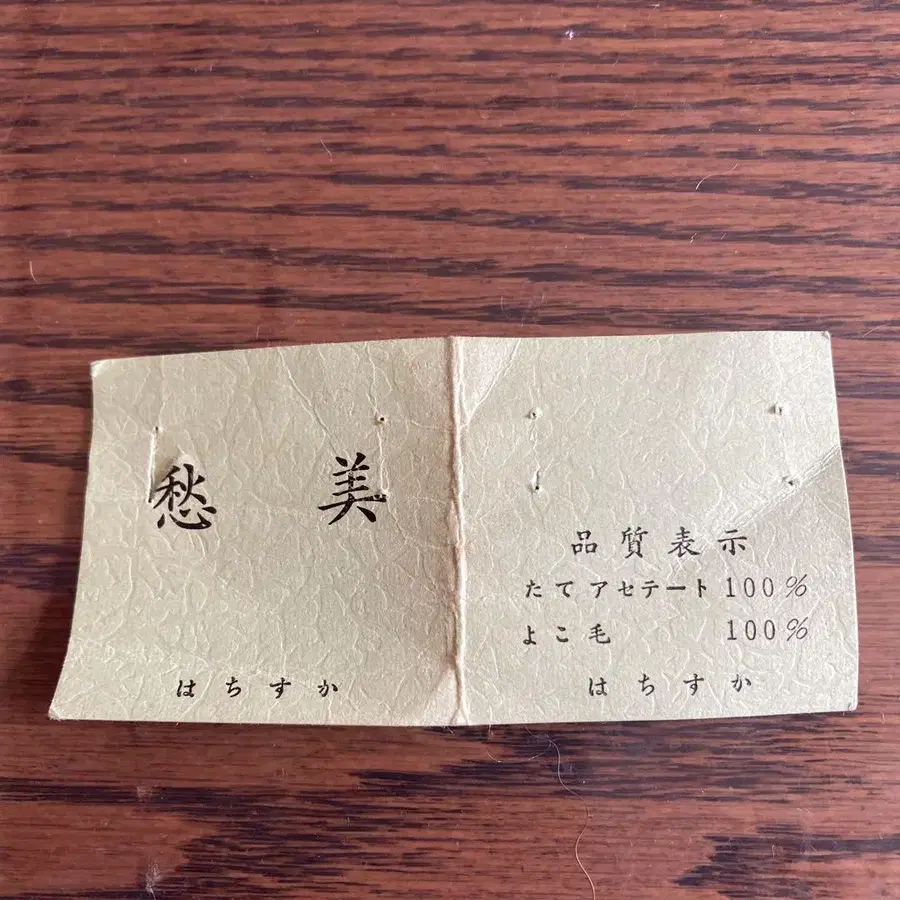 愁美
はちすか
品質表示
たてアセテート100%
よこ毛 100%
はちすか